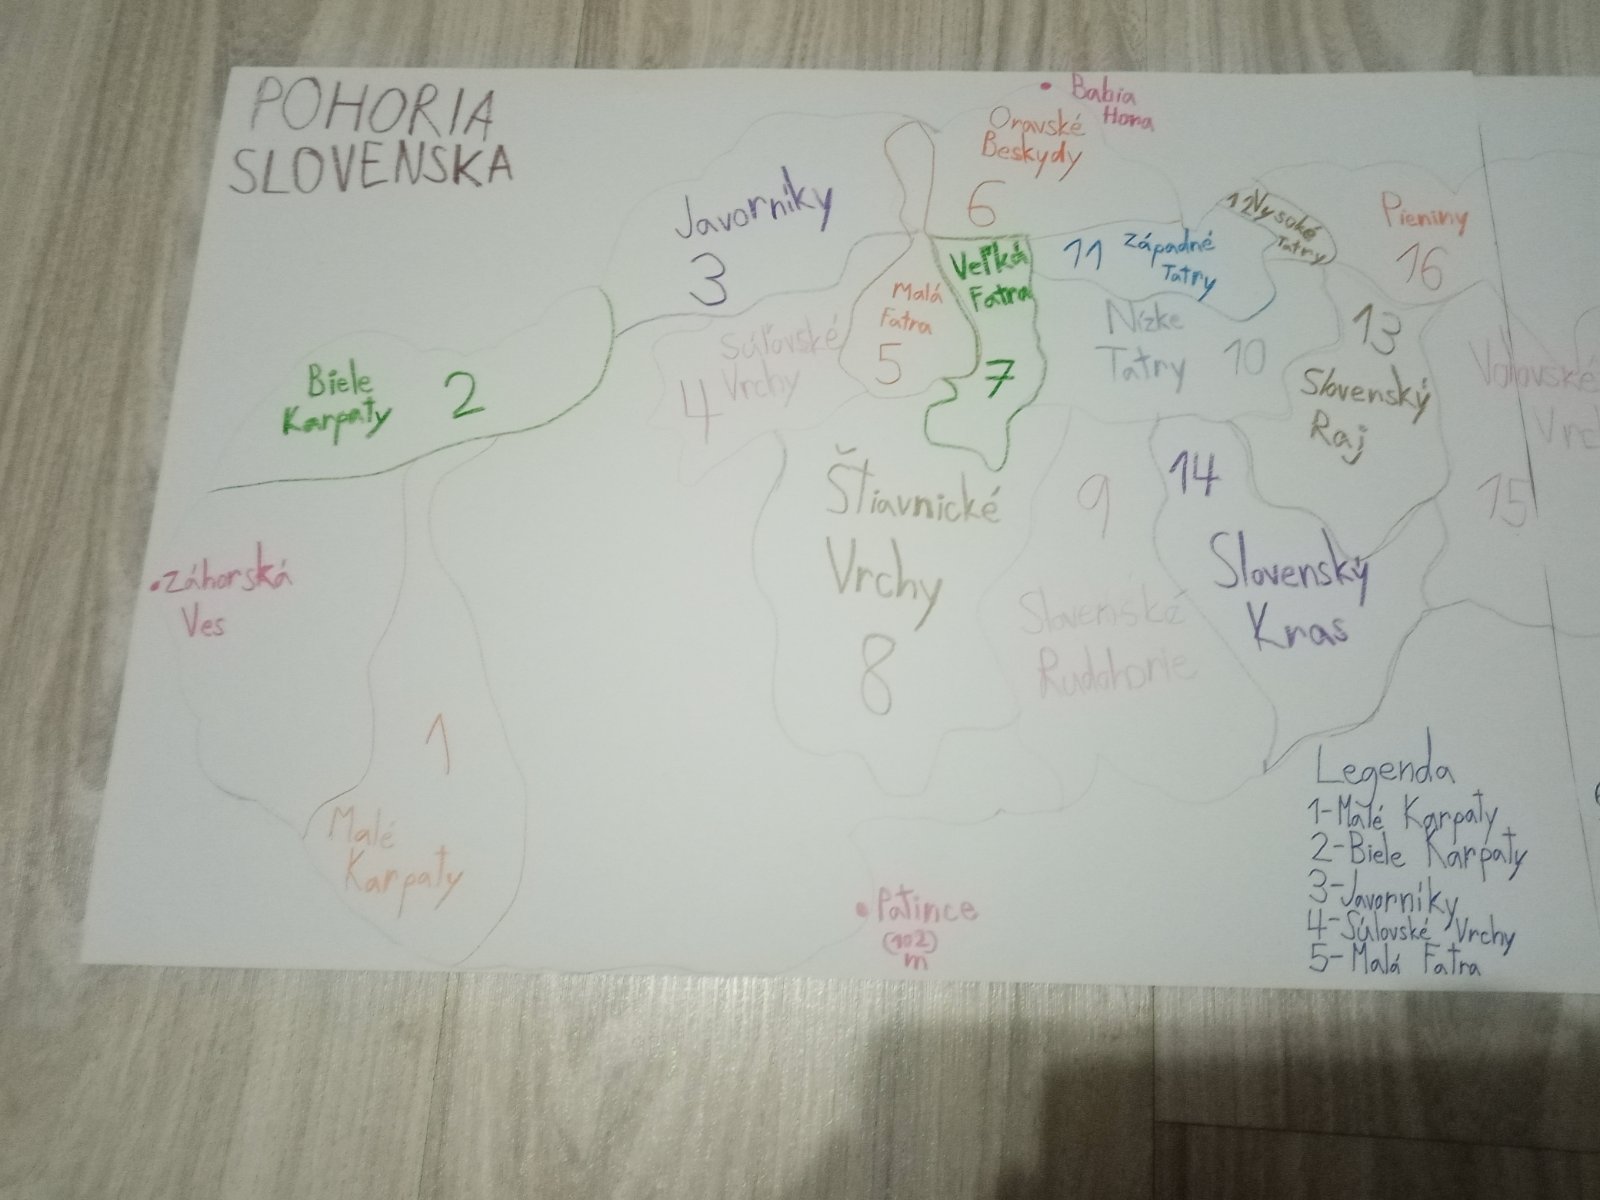 POHORIA
SLOVENSKA
Babia
Hora
Oravské
Beskydy
6
Javorníky
3
12 Vysoké
Tatry
Pieniny
16
Veľká
Fatra
7
11 Západné
Tatry
Malá
Fatra
5
Nízke
Tatry 10
13
Slovenský
Raj
Súľovské
Vrchy
4
Biele
Karpaty 2
15
14
Slovenský
Kras
Štiavnické
Vrchy
8
9
Slovenské
Rudohorie
Záhorská
Ves
1
Malé
Karpaty
Patince
(102)
m
Legenda
1-Malé Karpaty
2-Biele Karpaty
3-Javorníky
4-Súľovské Vrchy
5-Malá Fatra